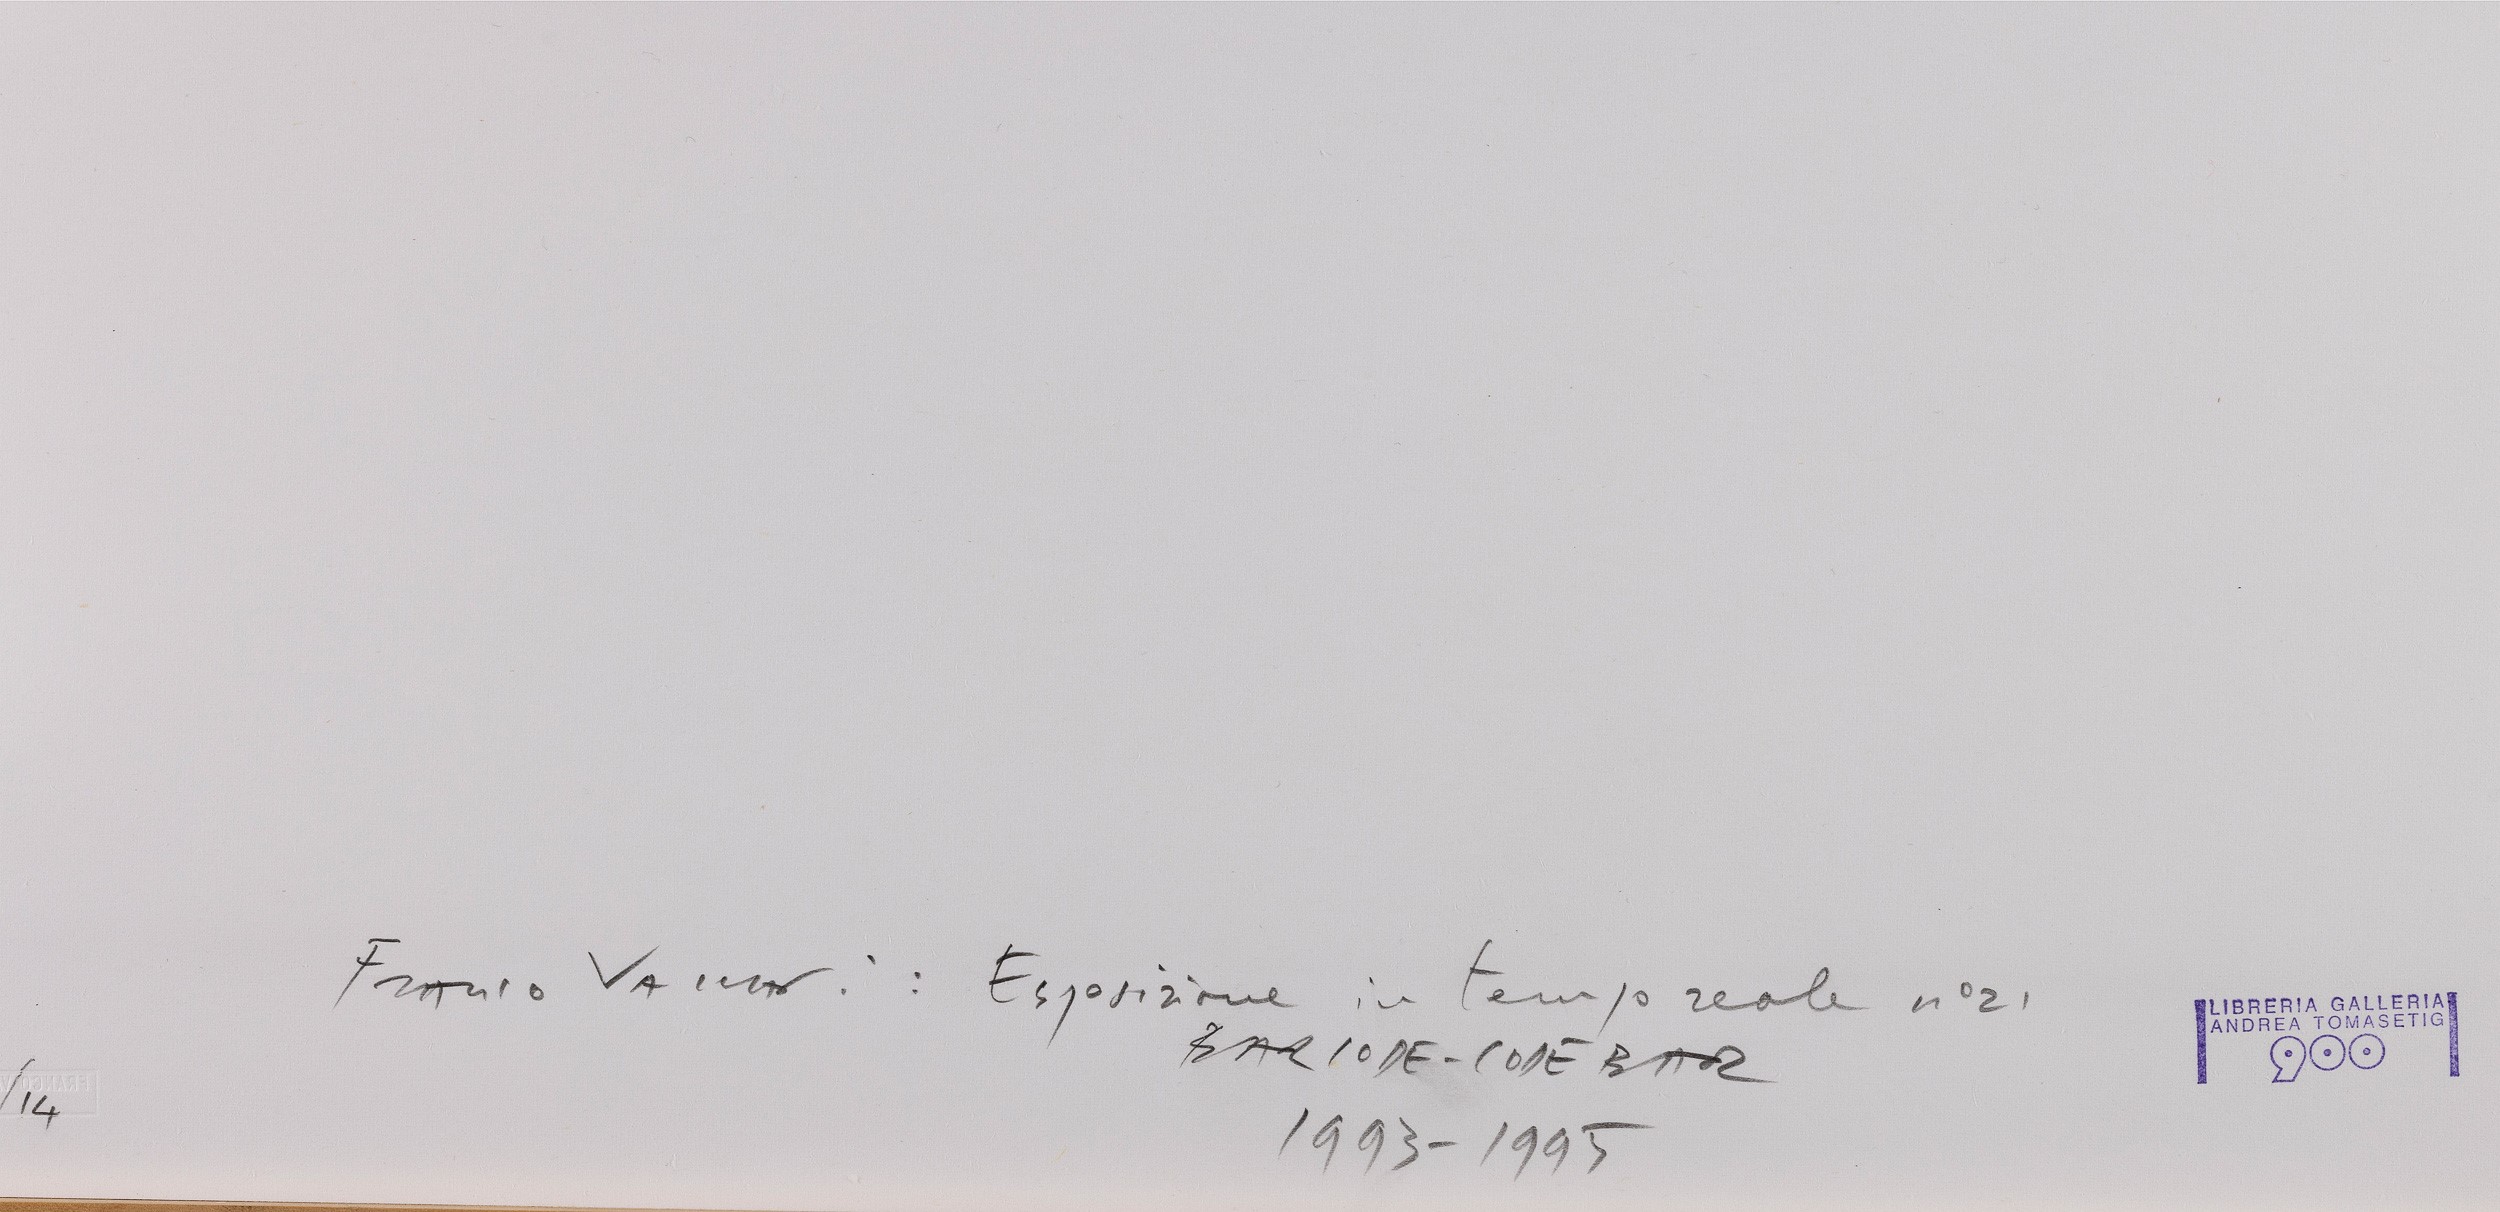 Franco Vaccari: Esposizione in tempo reale n°21
BARCODE-CODEBAR
1993-1995
/14
FRANCO
LIBRERIA GALLERIA
ANDREA TOMASETIG
900